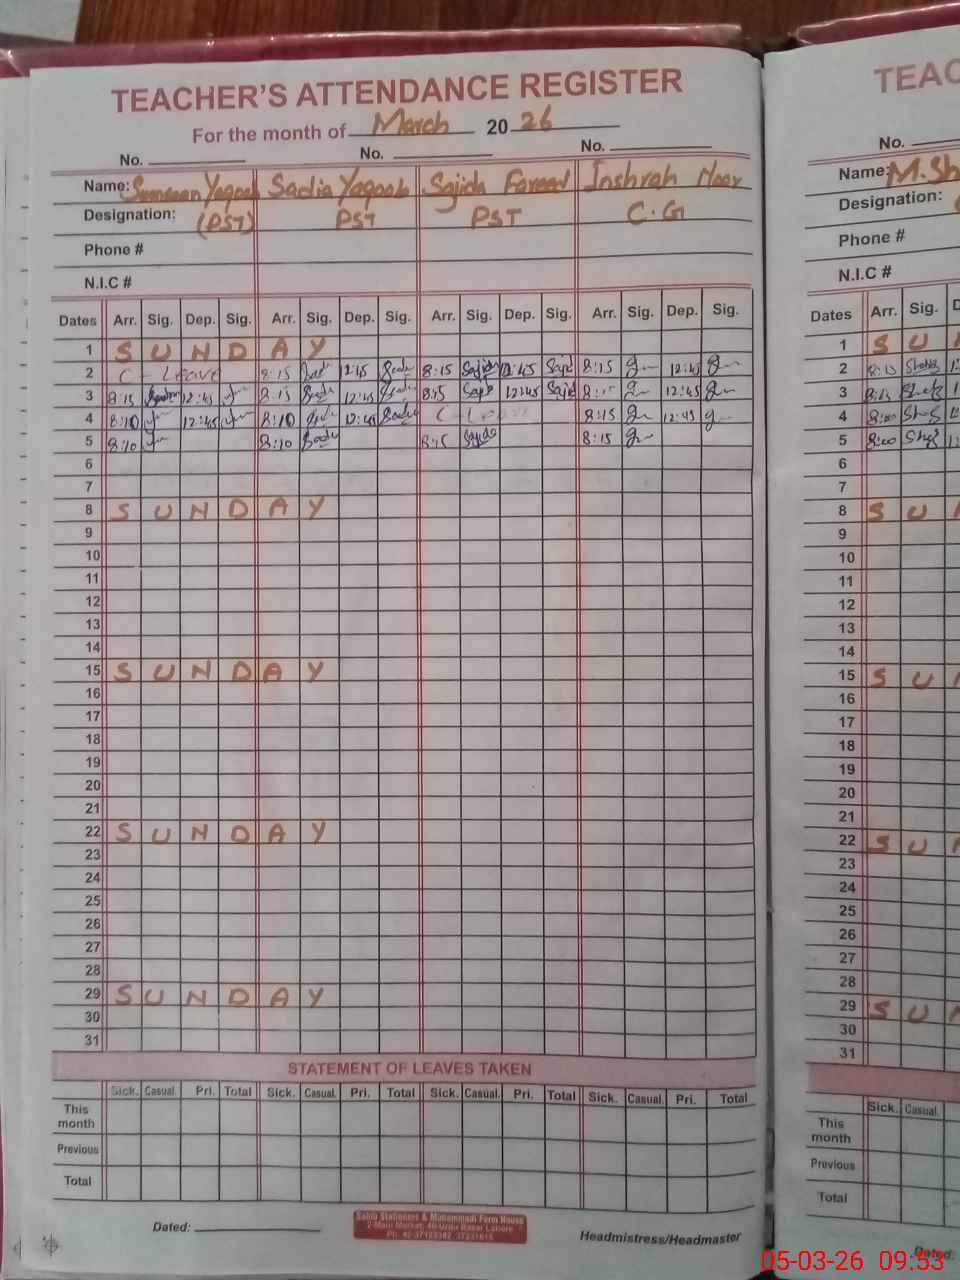 TEACHER'S ATTENDANCE REGISTER
For the month of March 2026
No. No. No.
Name: Yaqoob Sadia Yaqoob Sajida Inshrah Noor
Designation: (PST) PST PST C.G
Phone #
N.I.C #
Dates Arr. Sig. Dep. Sig. Arr. Sig. Dep. Sig. Arr. Sig. Dep. Sig. Arr. Sig. Dep. Sig.
1 SUNDAY
2 C-Leave 8:15 12:45 8:15 Sajida 12:45 8:15 12:45
3 8:15 12:45 8:15 12:45 8:15 12:45 8:15 12:45
4 8:10 12:45 8:10 12:45 C-Leave 8:15 12:45
5 8:10 8:10 8:15 Sajida 8:15
6
7
8 SUNDAY
9
10
11
12
13
14
15 SUNDAY
16
17
18
19
20
21
22 SUNDAY
23
24
25
26
27
28
29 SUNDAY
30
31
STATEMENT OF LEAVES TAKEN
Sick. Casual. Pri. Total Sick. Casual. Pri. Total Sick. Casual. Pri. Total Sick. Casual. Pri. Total
This month
Previous
Total
Dated:
Sabla Stationers & Muhammadi Form House
2-Main Market, 40-Urdu Bazar Lahore
Headmistress/Headmaster
TEAC
No.
Name: M.Sh
Designation:
Phone #
N.I.C #
Dates Arr. Sig. D
1 SU
2 8:15
3 8:15
4 8:00
5 8:00
6
7
8 SU
9
10
11
12
13
14
15 SU
16
17
18
19
20
21
22 SU
23
24
25
26
27
28
29 SU
30
31
Sick. Casual.
This month
Previous
Total
Dated:
05-03-26 09:53